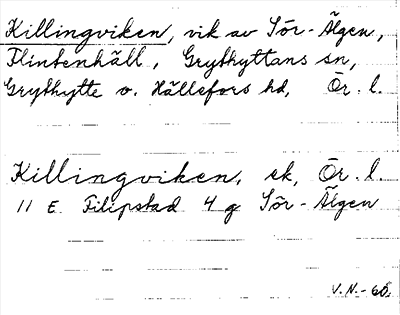 Killingviken, vik av Sör-Älgen,
Flintenhäll, Grythyttans sn,
Grythytte o. Hällefors hd, Ör. l.
Killingviken, ek, Ör. l.
11 E Filipstad 4 g Sör-Älgen
V.N.-60.